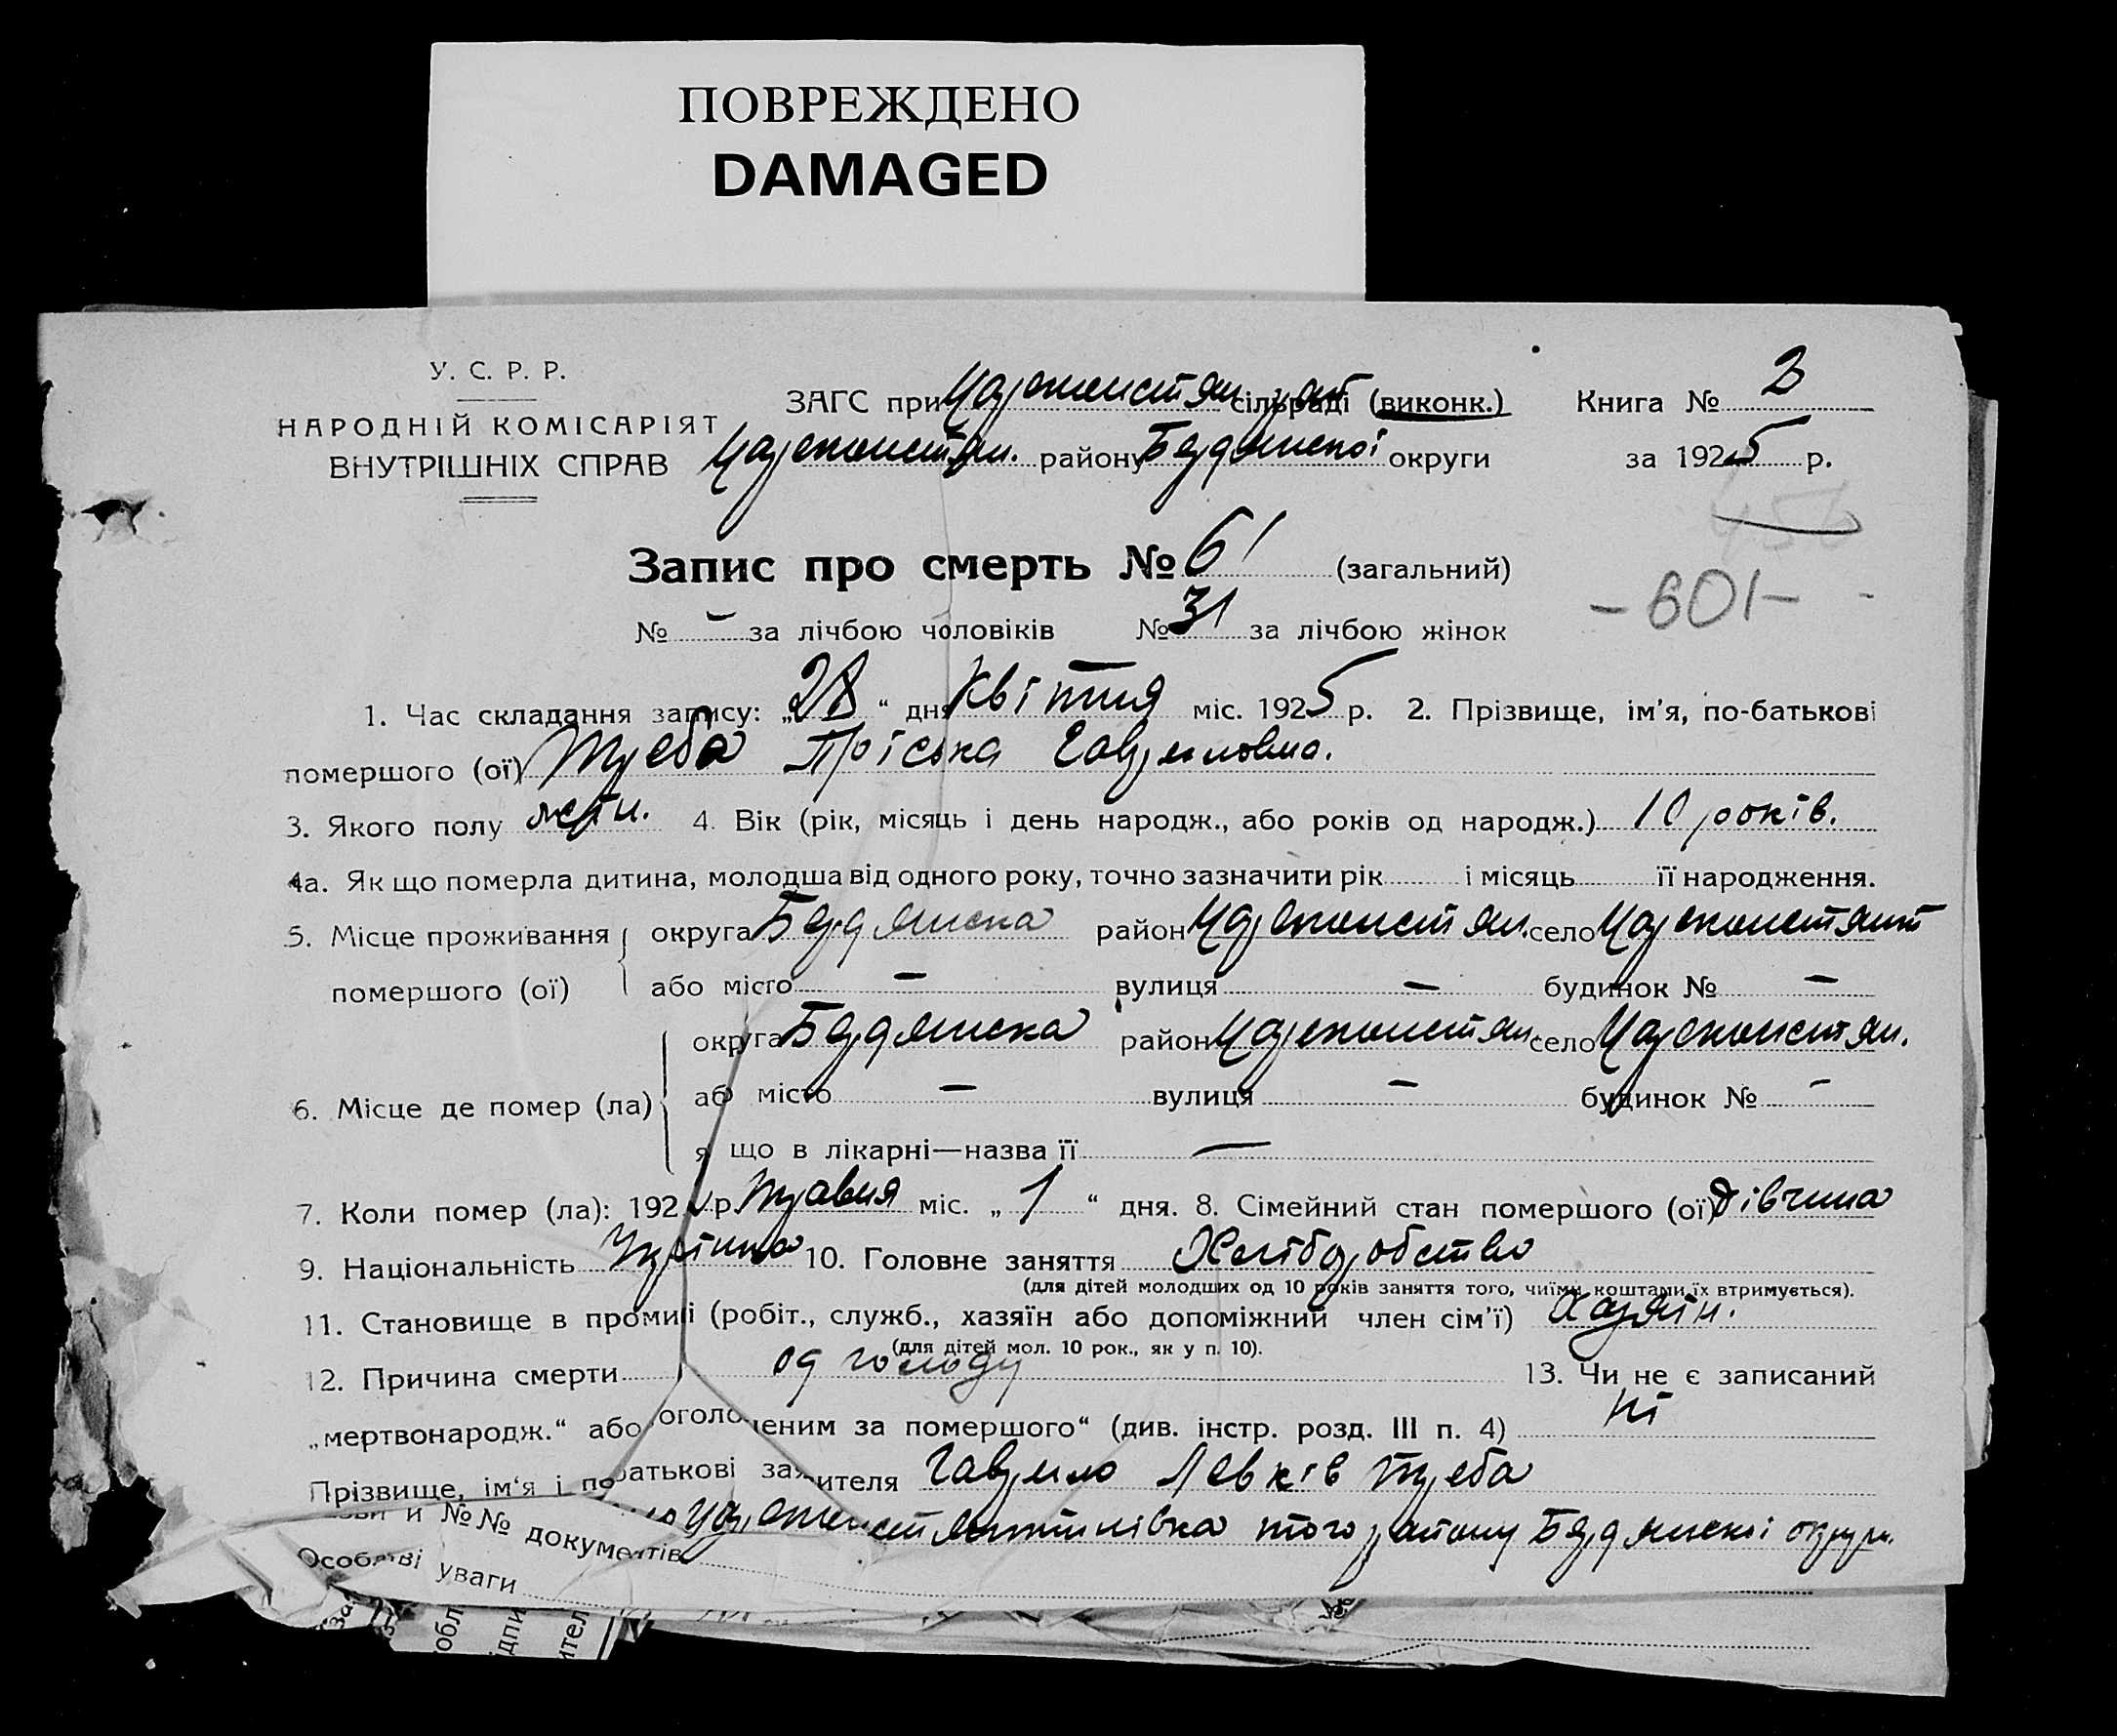 ПОВРЕЖДЕНО
DAMAGED
У. С. Р. Р.
НАРОДНІЙ КОМІСАРІЯТ
ВНУТРІШНІХ СПРАВ
ЗАГС при Царекостян. сільраді (виконк.) Книга № 2
Царекостян. району Бердянської округи за 1925 р.
456
Запис про смерть № 61 (загальний)
- 601 - -
№ - за лічбою чоловіків № 31 за лічбою жінок
1. Час складання запису: „28“ дня Квітня міс. 1925 р. 2. Прізвище, ім’я, по-батькові
помершого (ої) Треба Пріська Гавриловна.
3. Якого полу жін. 4. Вік (рік, місяць і день народж., або років од народж.) 10 років.
4а. Як що померла дитина, молодша від одного року, точно зазначити рік і місяць її народження.
5. Місце проживання округа Бердянска район Цареконстян. село Цареконстянт
помершого (ої) або місто - вулиця - будинок № -
округа Бердянска район Цареконстян. село Цареконстян.
6. Місце де помер (ла) аб місто - вулиця - будинок № -
я що в лікарні—назва її —
7. Коли помер (ла): 192 р. Травня міс. „1“ дня. 8. Сімейний стан помершого (ої) Дівчина
9. Національність 10. Головне заняття Хліборобство
(для дітей молодших од 10 років заняття того, чиїми коштами їх втримується).
11. Становище в промислі (робіт., служб., хазяїн або допоміжний член сім’ї) Хазяїн.
(для дітей мол. 10 рок., як у п. 10).
12. Причина смерти од голоду 13. Чи не є записаний
„мертвонародж.“ або оголошеним за помершого“ (див. інстр. розд. III п. 4) Ні
Прізвище, ім‘я і по батькові заявителя Гаврило Левків Треба
и №№ документів Цареконстянтинівка того району Бердянскої округи.
Особливі уваги